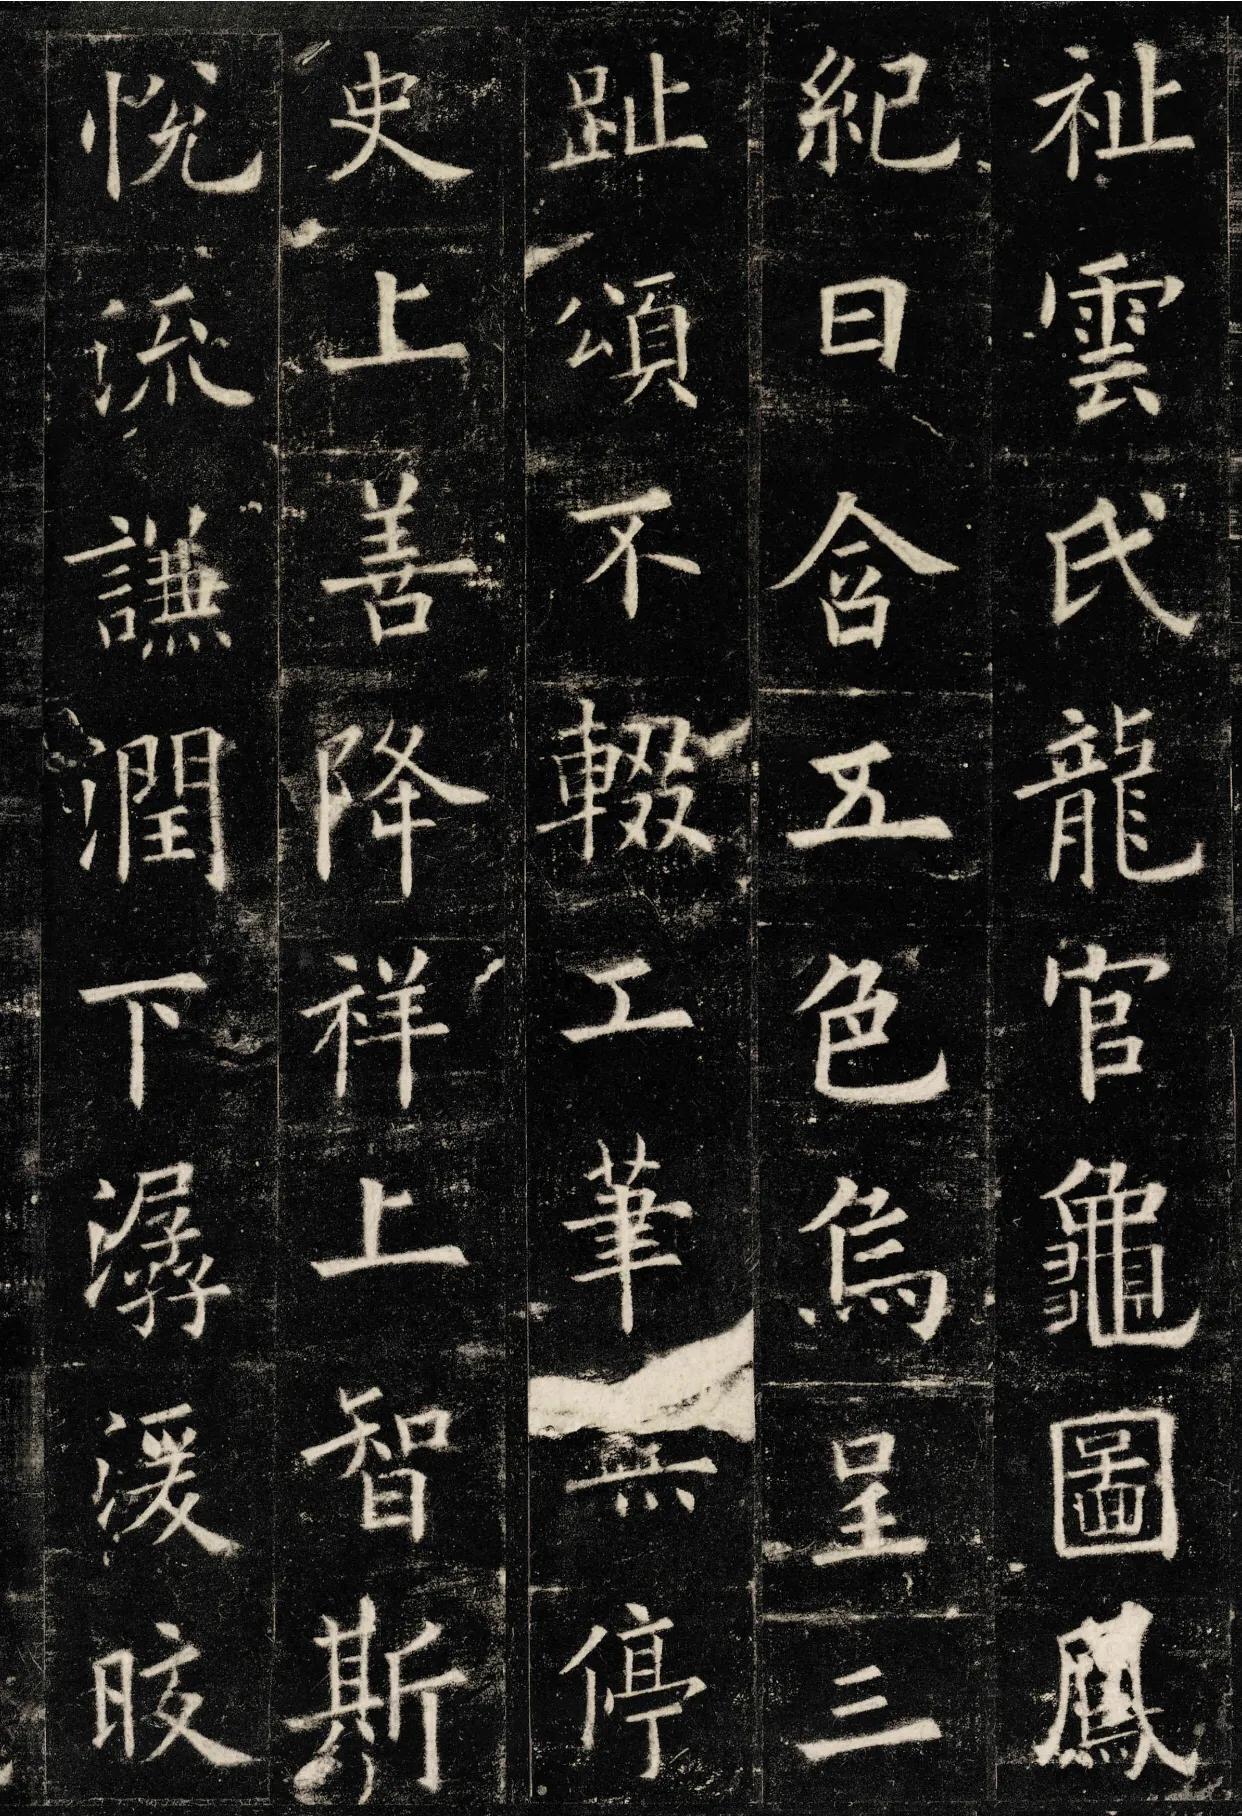 祉雲氏龍官龜圖鳳
紀日含五色烏呈三
趾頌不輟工筆無停
史上善降祥上智斯
悅流謙潤下潺湲晈